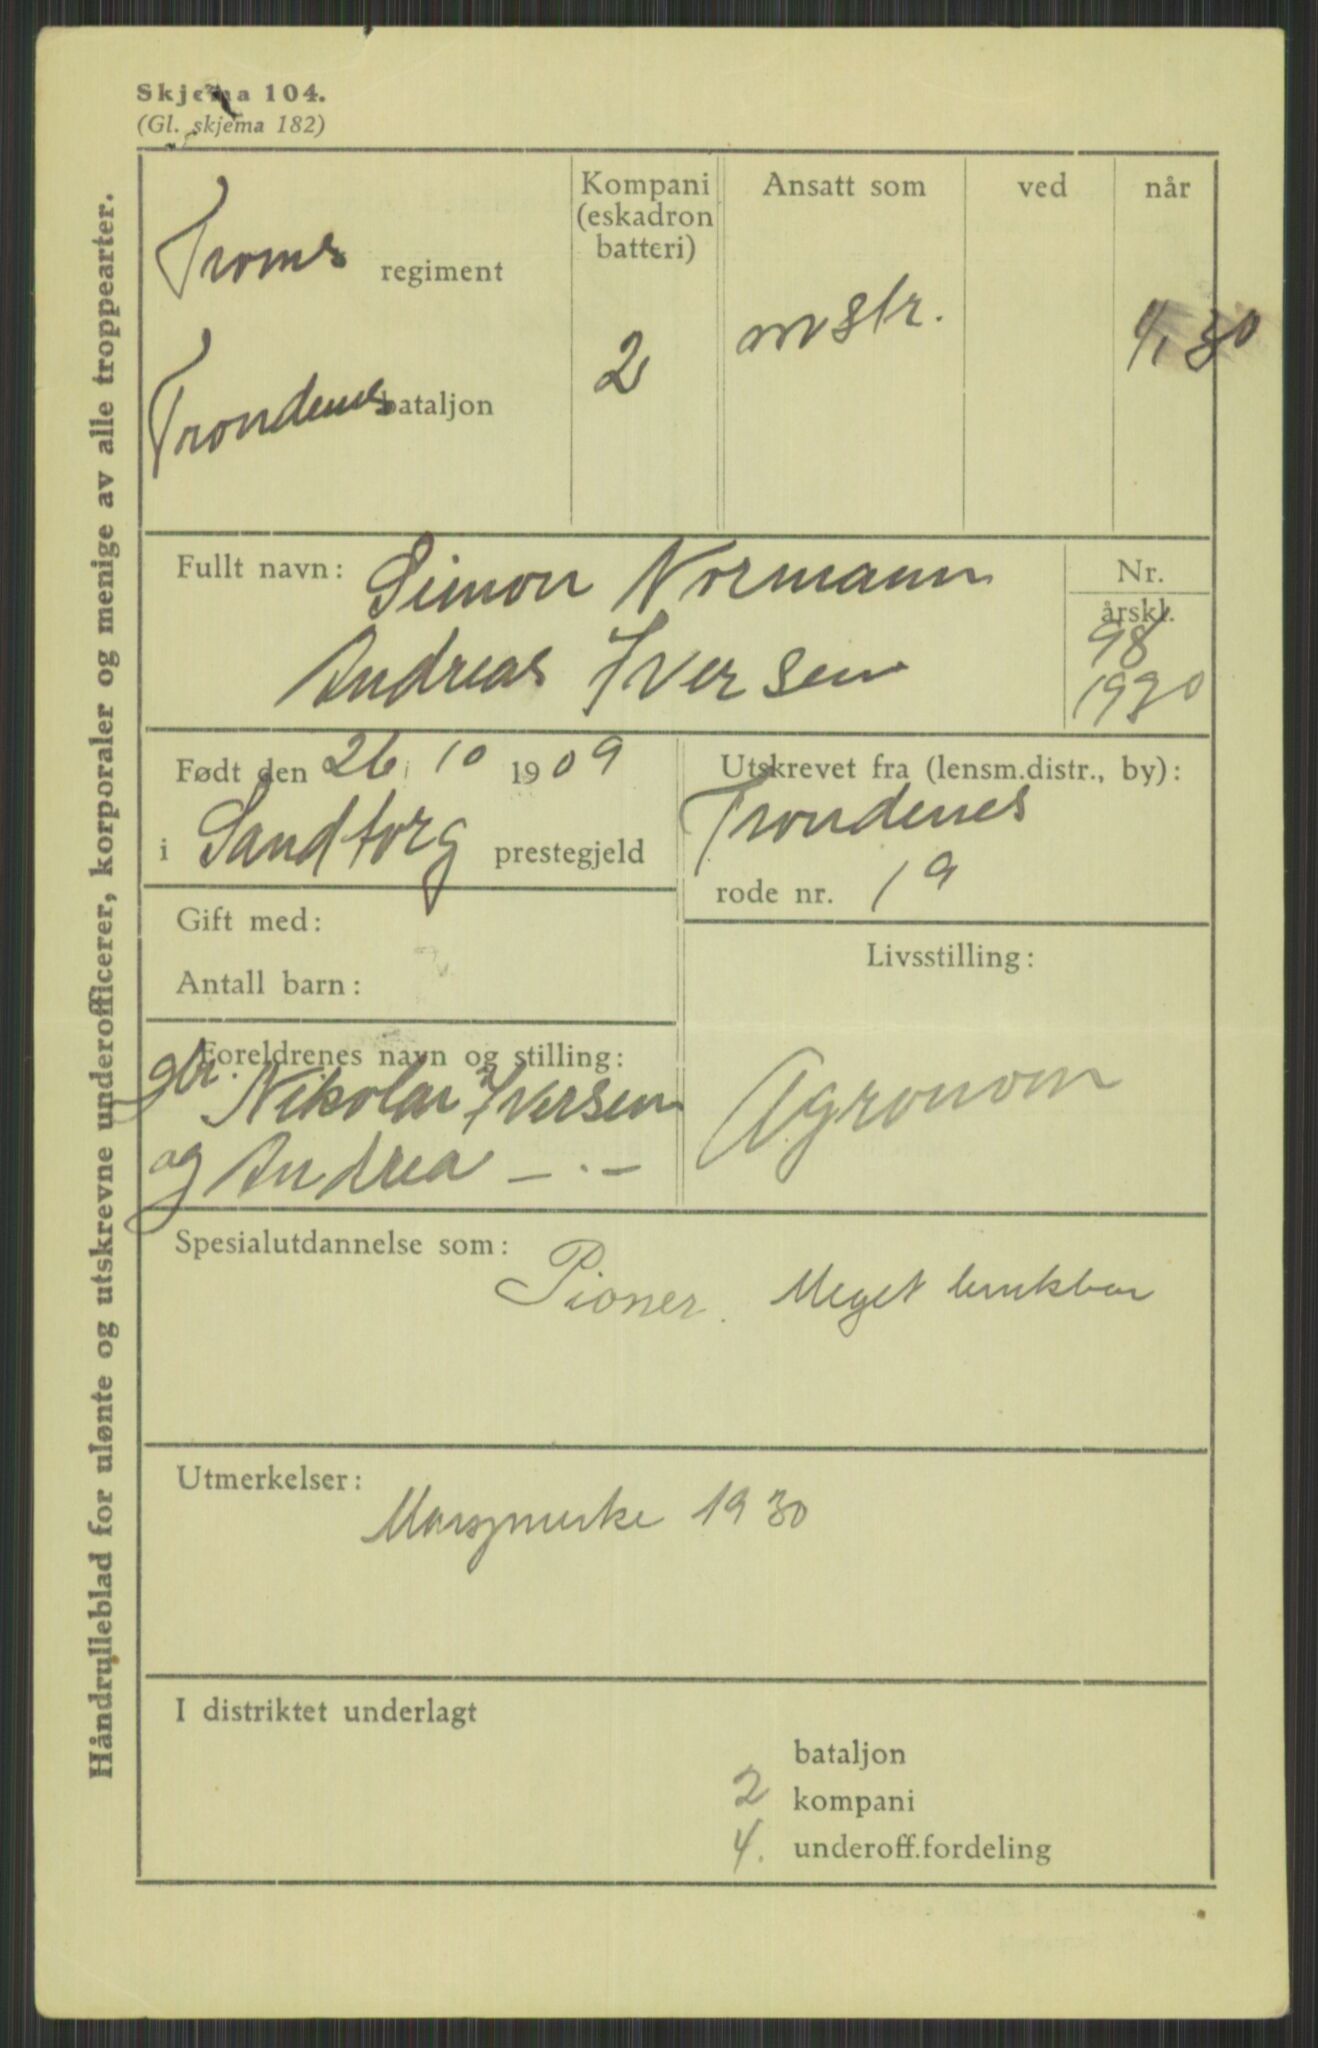 Skjema 104.
(Gl. skjema 182)
Håndrulleblad for ulønte og utskrevne underofficerer, korporaler og menige av alle troppearter.
Troms regiment
Trondenes bataljon
Kompani
(eskadron
batteri)
2
Ansatt som
mstr.
ved
når
1/1 30
Fullt navn: Simon Normann
Andreas Iversen
Nr.
årskl.
98
1930
Født den 26 10 1909
i Sandtorg prestegjeld
Utskrevet fra (lensm.distr., by):
Trondenes
rode nr. 19
Gift med:
Antall barn:
Livsstilling:
Agronom
Foreldrenes navn og stilling:
gbr. Nikolai Iversen
og Andrea — . —
Spesialutdannelse som:
Pioner. Meget brukbar
Utmerkelser:
Marsjmerke 1930
I distriktet underlagt
bataljon
2 kompani
4. underoff.fordeling